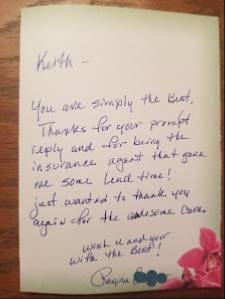 Keith -
You are simply the Best.
Thanks for your prompt
reply and for being the
insurance agent that gave
me some lead time!
just wanted to thank you
again for the awesome care.
wish u and your
with the Best!
Regina